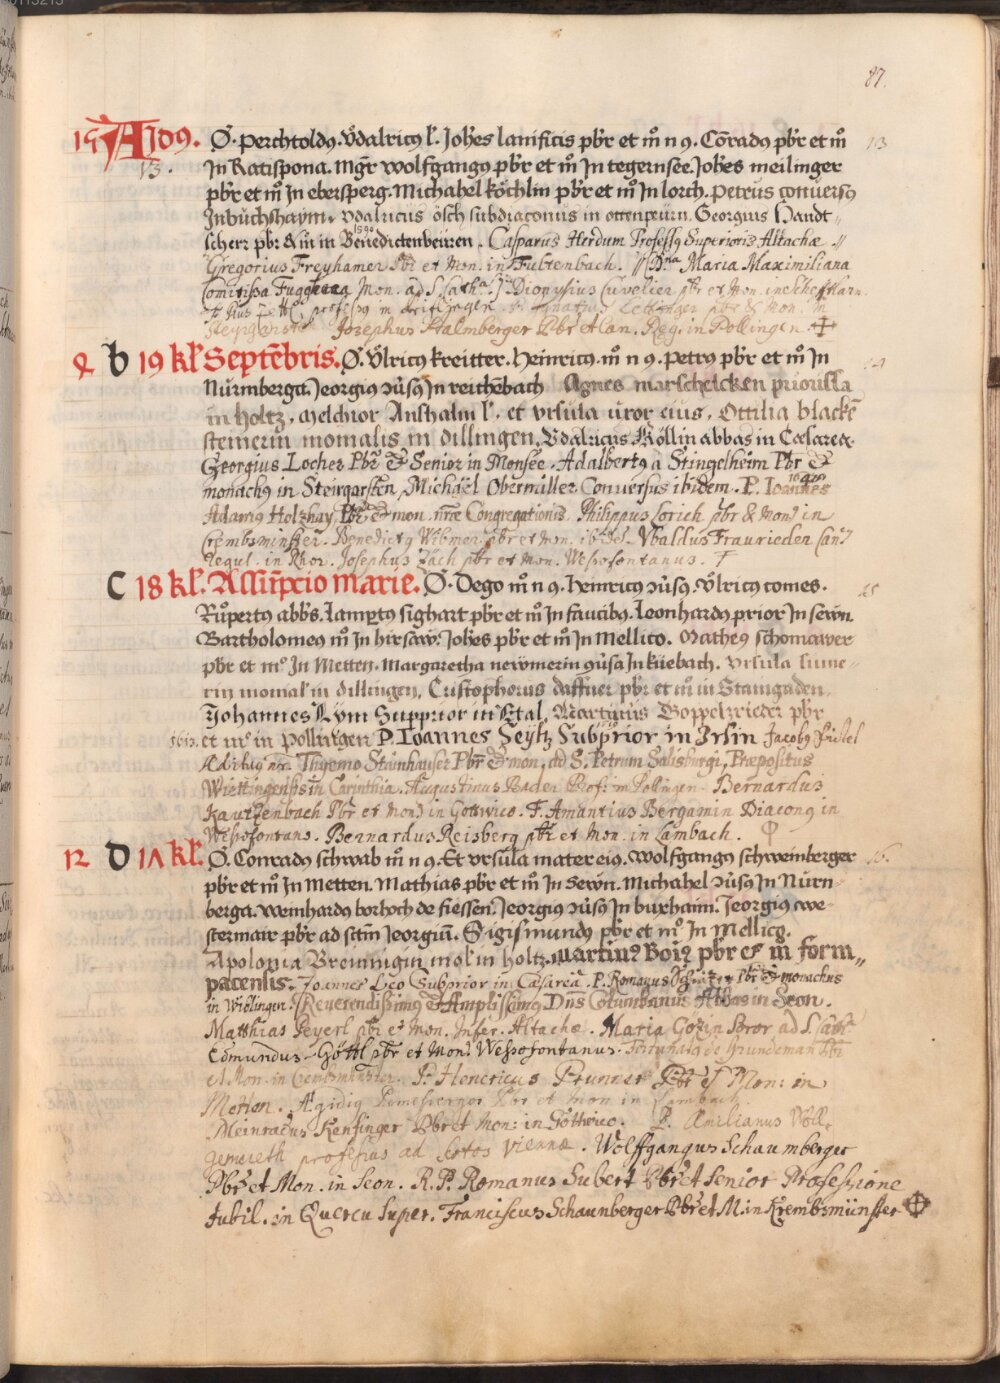 87.
15 A Idꝯ. O. Perchtoldꝯ. Vͦdalricꝯ l'. Joh̄es lanificis pb̄r et m̄ n ꝯ. Cōradꝯ pb̄r et m̄ 13
13. Jn Ratispona. Mḡr Wolfgangꝯ pb̄r et m̄ Jn tegernsee. Joh̄es meilinger
pb̄r et m̄ Jn ebersperg. Michahel köchlin pb̄r et m̄ Jn lorch. Petrus ꝯversꝯ
Jnbuchshaym. Vdalricus ösch subdiaconus in ottenpeürn. Georgius Handt„
scherr pb̄r & m̄ in Benedictenbeüren. 1590 Casparus Herdum Professꝯ Superioris Altachæ. //
Gregorius Freyhamer Pb̄r et Mon. in Fultenbach. // D.na Maria Maximiliana
Comitissa Fuggera Mon. ad S. Catha. Dionysius Cuvelier pb̄r et Mon. in Schefftlarn.
Josephus Halmberger Pb̄r et Can. Reg. in Pollingen. ✠
2 b 19 kl' Septēbris. O. Vͦlricꝯ kreitter. Heinricꝯ. m̄ n ꝯ. Petrꝯ pb̄r et m̄ Jn 14
Nürmberga. Jeorgiꝯ ꝯv̄sꝯ Jn reichēbach Agnes marschelcken priorissa
in holtz. Melchior Anshalm l'. et vrsula uxor eius. Ottilia blackē
steinerin monialis in dillingen. Vdalricus Köllin abbas in Cæsarea.
Georgius Locher Pb̄r & Senior in Monsee. Adalbertꝯ a Stingelheim Pb̄r &
monachꝯ in Steingarsten. Michaël Obermüller Conversus ibidem. P. Ioannes 1646
Adamꝯ Holzhay Pb̄r & mon. nr̄æ Congregationis. Philippus Sorich pb̄r & Mon. in
Crembsminster. Benedictꝯ Widmer pb̄r et Mon. ibid. Vbaldus Fraurieder Can.
Regul. in Rhor. Josephus Zäch pb̄r et Mon. Wessofontanus. †
C 18 kl'. Assūpcio marie. O. Dego m̄ n ꝯ. Heinricꝯ ꝯv̄sꝯ. Vͦlricꝯ comes. 15
Ruͦpertꝯ abb̄s. Lamptꝯ sighart pb̄r et m̄ Jn faucibꝯ. Leonhardꝯ prior Jn sewn.
Bartholomeꝯ m̄ Jn hirsaw. Joh̄es pb̄r et m̄ Jn Mellico. Matheꝯ schomawer
pb̄r et mͦ Jn Metten. Margaretha newmerin ꝯv̄sa Jn küebach. Vrsula sume-
rin monial' in dillingen. Cristophorus daffner pb̄r et m̄ in Staingaden.
Johannes Lym Supprior in Etal. Martinus Boppelzrieder pb̄r
1613. et mͦ in Pollingen P. Ioannes Seyltz Subprior in Irsin Jacobꝯ
Ædituꝯ nr̄. Thyemo Stainhauser Pb̄r & mon. ad S. Petrum Salisburgi, Præpositus
Wiettingensis in Carinthia. Augustinus Bader Prof. in Pollingen. Bernardus
Kautzenbach Pb̄r et Mon. in Gottwico. F. Amantius Bergamin Diaconꝯ in
Wessofontano. Bernardus Reisberg pb̄r et Mon. in Lambach.
12 D 17 kl'. O. Conradꝯ schwab m̄ n ꝯ. Et vrsula mater eiꝯ. Wolfgangꝯ schweinberger 16.
pb̄r et m̄ Jn Metten. Mathias pb̄r et m̄ Jn Sewn. Michahel ꝯv̄sꝯ Jn Nürn-
berga. Weinhardꝯ borhoch de fiessen. Jeorgiꝯ ꝯv̄sꝯ Jn buxhaim. Jeorgiꝯ we-
stermair pb̄r ad sct̄m Jeorgiū. Sigismundꝯ pb̄r et mͦ Jn Mellico.
Apolonia Breinnigin mol' in holtz. Martinꝯ Boiꝯ pb̄r et m̄ form„
pacensis. Joannes Leo Subprior in Cæsarea. P. Romanus Pb̄r & monachus
in Wiblingen. Reverendissimꝯ & Amplissimꝯ Dn̄s Columbanus Abbas in Seon.
Matthias Peyerl pb̄r et Mon. Infer. Altachæ. Maria Götzin Soror ad S. Cath.
Edmundus Göttl pb̄r et Mon. Wessofontanus. Fortunatꝯ de Grundeman Pb̄r
et Mon. in Cremsmünster. P. Henricus Prunner Pb̄r et Mon: in
Metten. Ægidiꝯ Ramesberger Pb̄r et mon in Lambach
Meinradus Kensinger Pb̄r et Mon: in Gottwico. P. Æmilianus
gemueth professus ad Scotos Viennæ. Wolffgangus Schaumberger
Pb̄r et Mon. in Seon. R.P. Romanus Subert Pb̄r et Senior Professione
Jubil. in Quercu Super. Franciscus Schaunberger Pb̄r et M. in Krembsmünster ✠